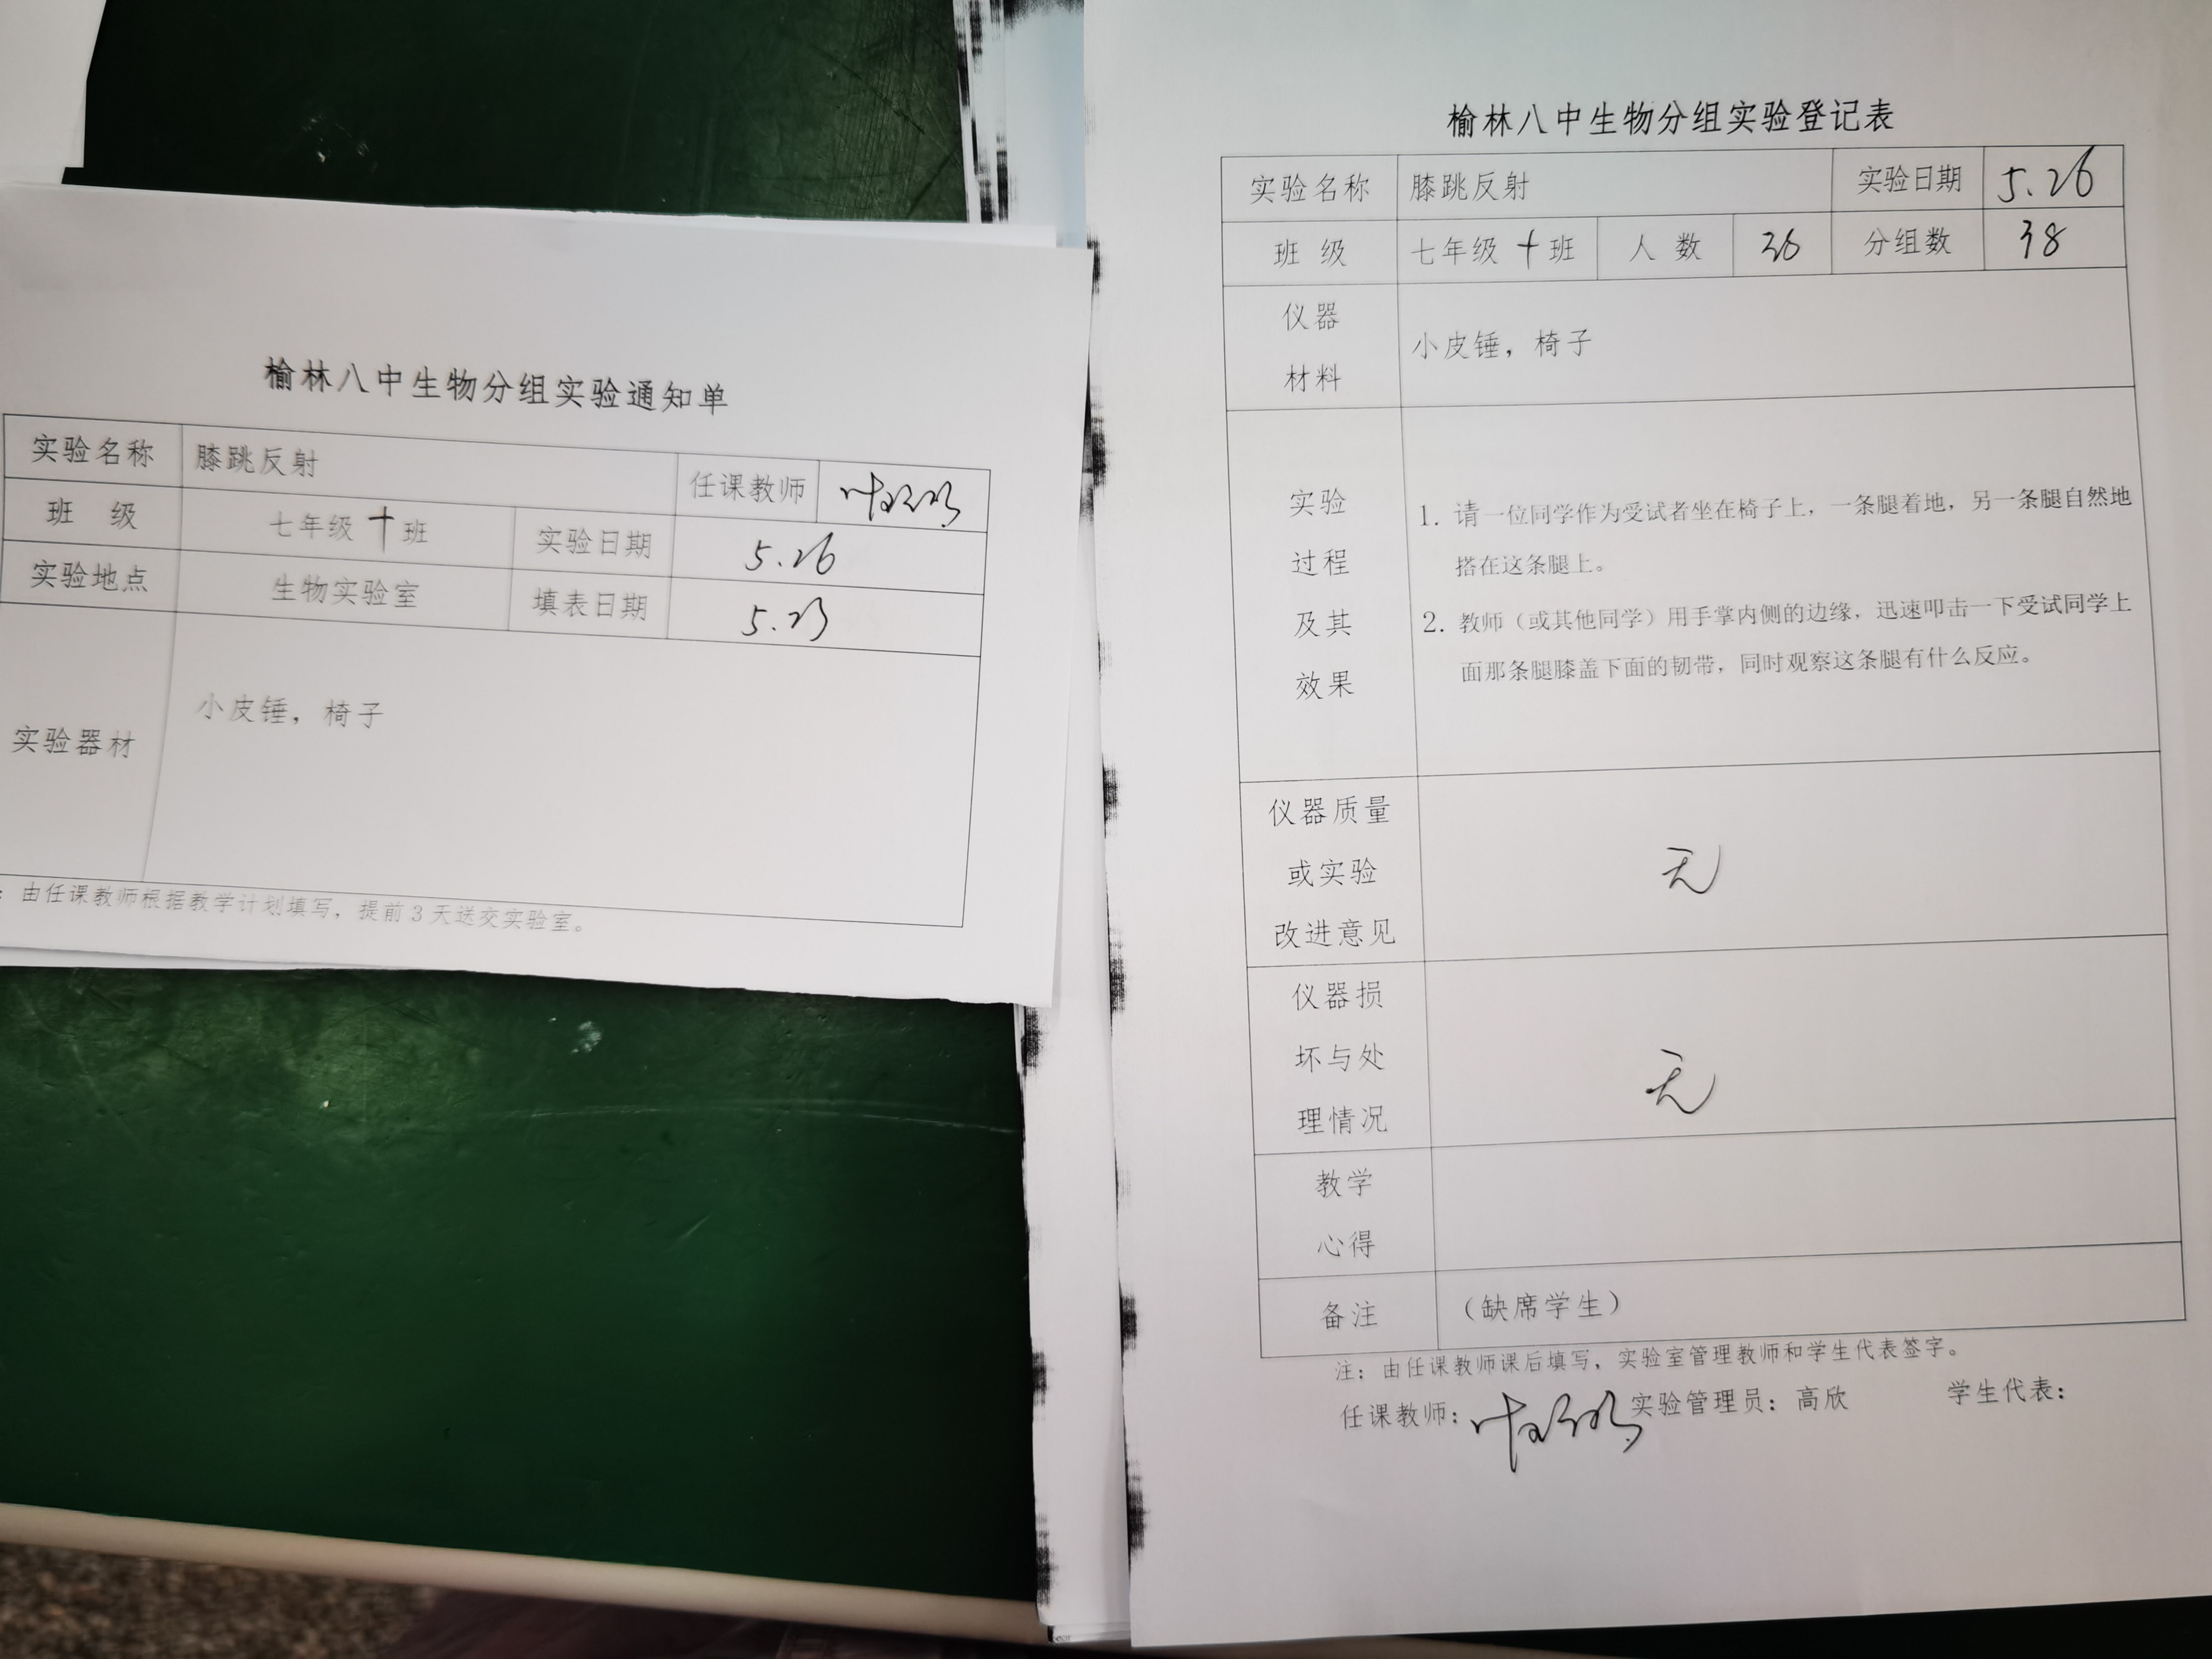 榆林八中生物分组实验通知单
实验名称 膝跳反射 任课教师
班 级 七年级十班 实验日期 5.26
实验地点 生物实验室 填表日期 5.23
实验器材 小皮锤，椅子
：由任课教师根据教学计划填写，提前3天送交实验室。
榆林八中生物分组实验登记表
实验名称 膝跳反射 实验日期 5.26
班 级 七年级十班 人 数 36 分组数 38
仪器
材料
小皮锤，椅子
实验
过程
及其
效果
1. 请一位同学作为受试者坐在椅子上，一条腿着地，另一条腿自然地
搭在这条腿上。
2. 教师（或其他同学）用手掌内侧的边缘，迅速叩击一下受试同学上
面那条腿膝盖下面的韧带，同时观察这条腿有什么反应。
仪器质量
或实验
改进意见
无
仪器损
坏与处
理情况
无
教学
心得
备注 （缺席学生）
注：由任课教师课后填写，实验室管理教师和学生代表签字。
任课教师： 实验管理员：高欣 学生代表：